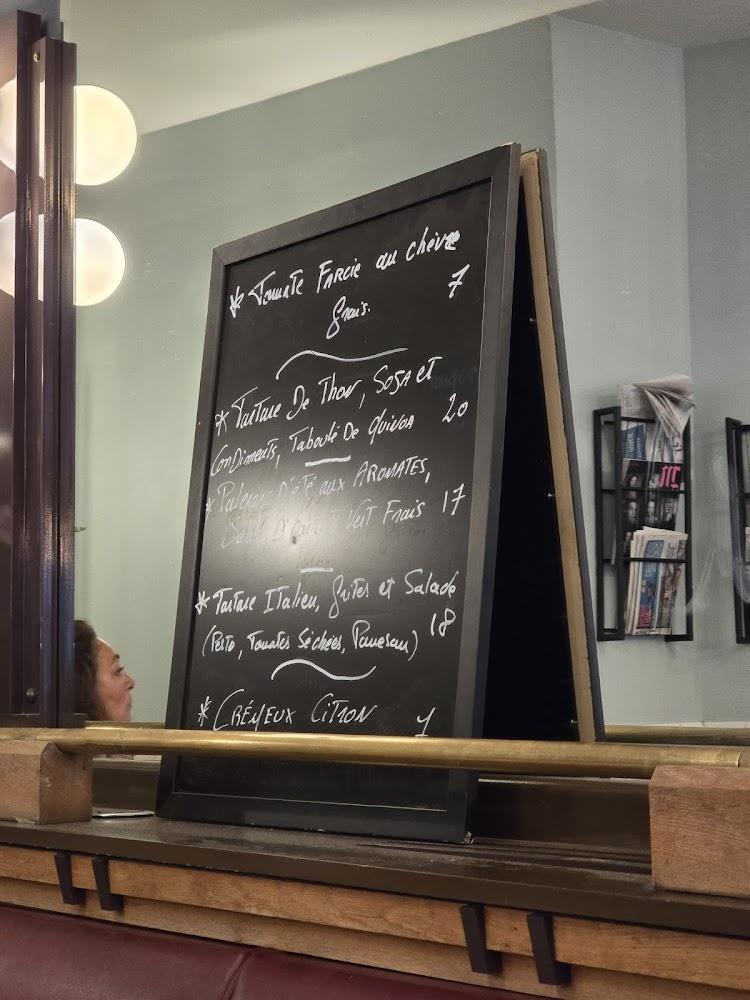 * Tomate Farcie au chèvre 7
frais.
* Tartare De Thon, Soja et
Condiments, Taboulé De quinoa 20
* d'été aux Aromates,
Vert Frais 17
* Tartare Italien, frites et Salade
(Pesto, Tomates Séchées, Parmesan) 18
* Crémeux Citron